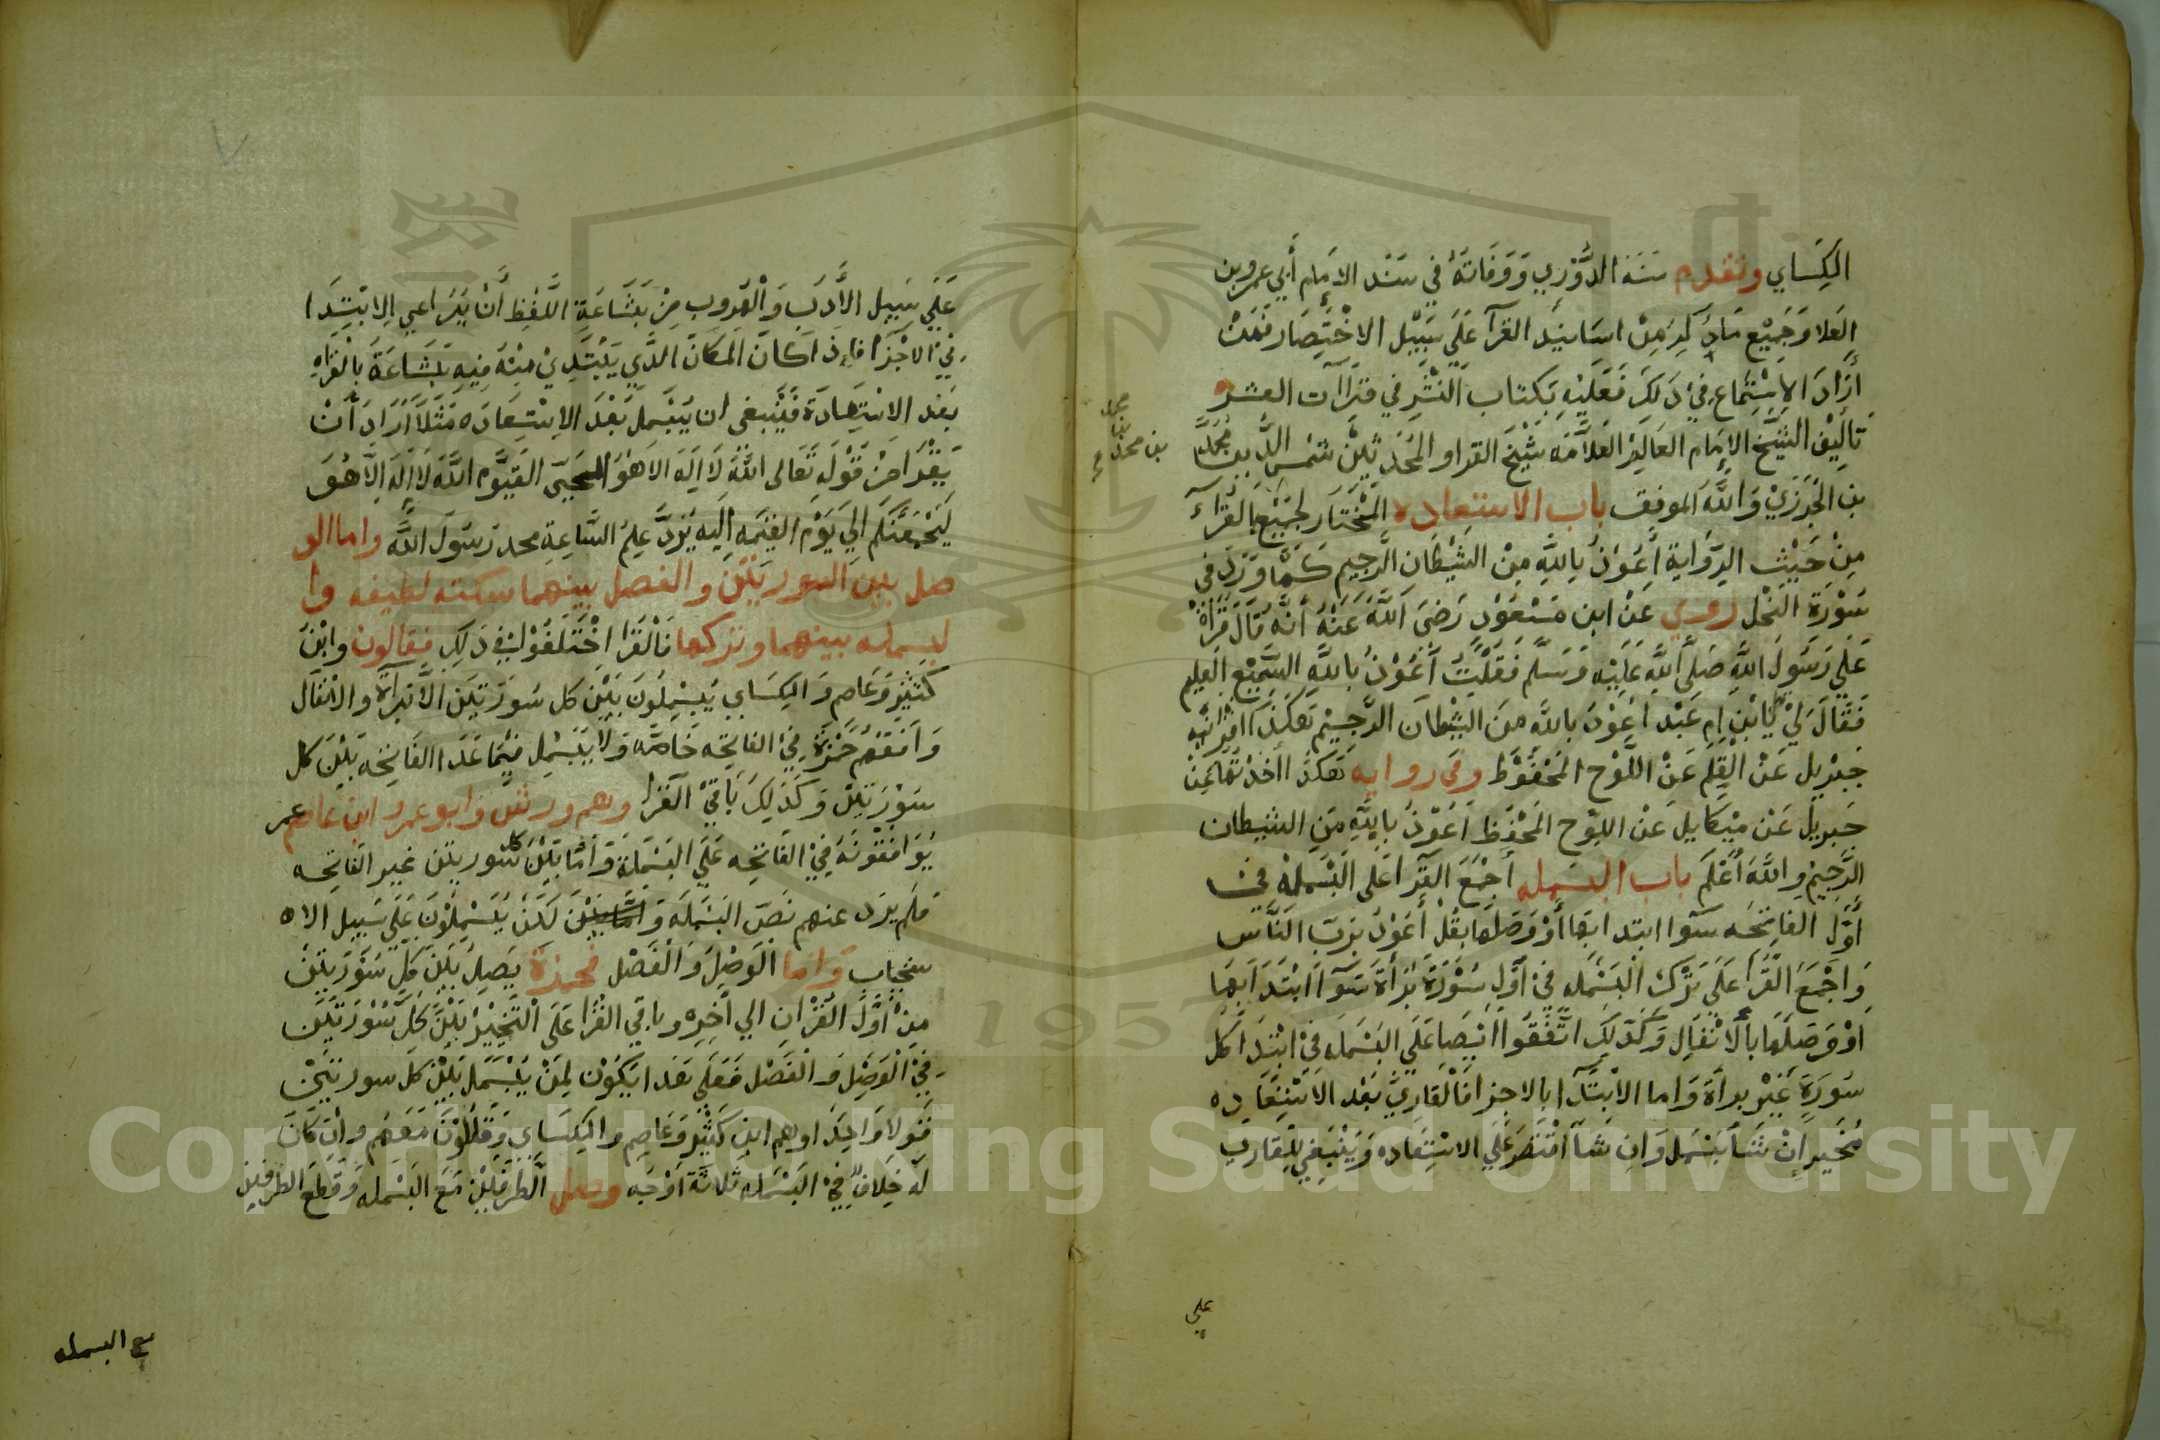 الكِسَاي وتقدم سَنَدَ الدُّوْرِي وَوَفَاتهُ في سَنَد الامَام أبي عمرو بن
العَلا وَجَمِيْع مَا ذُكِرَ مِنْ اسَانيد القرآ عَلَي سَبِيْل الاخْتِصَار فَمَنْ
أرَادَ الاِسْتِمَاع فِيْ ذَلِكَ فَعَلَيْهِ بِكتاب النَّشْرِ في قرَاآت العشره
تَالِيْف الشَّيْخ الاِمَام العَالِمْ العَلاَّمَه شَيْخ القرا و المُحَدِّثِيْن شَمْس الدِّين محَمَّد
بن محمد بن محمد
بن الجَزَرِيْ وَاللَّهُ الموفق باب الاستعاده المُخْتَار لِجَمِيْع القُرَّآء
مِنْ حَيْث الرِّوَايَة أَعُوذُ بِاللَّهِ مِنْ الشَّيْطَان الرَّجِيم كَمَا وَرَدَ في
سُوْرَة النَّحْل روي عَنْ ابن مَسْعُوْد رَضِىَ اللَّه عَنْهُ أنَّه قَالَ قَرَأتُ
عَلَى رَسُول اللَّهِ صَلَّى اللَّهُ عَلَيْه وَسَلَّم فَقُلْتُ أَعُوْذُ بِاللَّهِ السَّمِيْع العَلِيم
فَقَالَ لِيْ يَا ابْنِ امِ عَبْد اعُوْذُ بِاللَّهِ مِنَ الشَّيْطَان الرَّجِيْم هَكَذَا اقْرَانِيْه
جبْرِيل عَنْ القَلِم عَنْ اللَّوْح المَحْفُوْظ وفي روايه هَكَذَا أخَذْتُهَا عَنْ
جبريل عَنْ مِيْكَايل عَنْ اللوح المحْفُظ أَعُوْذُ بِاللَّهِ مِنَ الشيطان
الرَّجِيْمِ وَاللَّهُ أَعْلَم باب البسمله أجْمَعَ القُرا عَلَى البَسْمَلَة فيْ
أَوَّل الفَاتِحَه سَوا ابتدا بهَا أوْ وَصَلَهَا بقُلْ أَعُوْذُ بِرَبّ النَّاس
وَاجْمَعَ القُرَّا عَلَي تَرْك البَسْمَلَه فِيْ أوَّل سُوْرَة بَرَأَة سَوآ ابْتَدَا بَهَا
اوْ وَصَلَهَا بالانْفَاَل وَكَذَلِكَ اتَّفَقُوا ايْضا عَلَي البَسْمَلَه فِيْ ابْتِدَا كل
سُوَرَة غَيْرِ براة وَاما الابْتِدَا بالاجزا فَالْقَارِيْ بَعْد الاسْتِعَاده
مُخَيرْ إِنْ شَآ بَسْمل وَان شَآ اقْتَصَر عَلَي الاسْتِعَاده وَيَنْبَغِي لِلْقَارِي
علي
عَلَي سَبِيل الأَدَبِ وَالْهُرُوبِ مِنْ بَشَاعَةِ اللَّفْظِ أَنْ يُرَاعِي الابْتِدَا
فِيْ الاجْزَا فاِذَ اكَانَ المَكَان الذَّي يَبْتَدِيْ مِنْهُ فِيهِ بَشَاعَةَ بِالْقِرَاه
بَعْد الاسْتِعَادَة فَيَنْبغى ان يُبَسْمِل بَعْدَ الاِسْتِعَادَه مَثَلاً أَرَادَ أنْ
يَقْرَا مِنْ قَوْلَهِ تَعَالى اللَّهُ لَا اِلَهَ الا هُوَ الحَيّ القَيُّوم اللَّهُ لَا اِلَهَ اِلَّا هُوَ
لَيَجْمَعَنَّكُم الِي يَوْم القيَمَه إِلَيْه يُرَدُّ عِلمُ السَّاعَةِ محمد رَسُولَ اللَّه واما الو
صل بين السورتين والفصل بينهما سكته لطيفه وا
لبسمله بينهما وتركها فَالْقُرَا اخْتَلَفُوْا في ذَلِكِ فقالون وابْن
كَثِيْر وَعَاصِم وَالكِسَاي يُبَسْمِلُونَ بَيْنَ كل سُورَتيْن الَّا بَرَآة والانْفَال
وَافَقَهُمْ حَمْزَةُ فِيْ الفَاتِحَه خَاصَّه وَلَا يُبَسْمِل فِيْمَا عَدَا الفَاتِحَه بَيْنَ كل
سُوْرَتَيْن وَكَذَلِكَ بَاقيْ القُرَا وهم ورش وابو عمرو ابن عامر
يُوَافِقُوْنَهُ فِيْ الفَاتِحِه عَلَي البَسْمَلَة وَأمَّا بَيْنَ كل سُورَتين غير الفَاتِحه
فلَمْ يرد عنهم نَصّ البَسْمَلَه لكن يُبَسْمِلُوْنَ عَلَي سَبِيل الا
ستحباب واما الوَصْل وَالفَصْل فحمزة يَصِلُ بَيْنَ كل سُوْرَتَيْن
مِنْ أوَّلِ القُرْان الي اخِرِه وباقي القُرا عَلَى التَخْيِيْر بَيْنَ كل سُوْرَتَيْن
فِيْ الوَصْل وَالفَصْل فَعَلَى هَذَا يَكُوْن لِمَنْ يُبَسْمل بَيْنَ كل سورتين
قَوْلا وَاحِدًا وهم ابن كَثِيْر وَعَاصِم والكِسَاي وَقَالُوْنَ مَعَهُم وان كَانَ
لَه خِلافٌ فِيْ البَسْمَلَه ثَلَاثَة أوْجُه وصل الطَرَفَيْن مَعَ البَسْمله وَقَطع الطرفين
مع البسمله
1957
Copyright © King Saud University